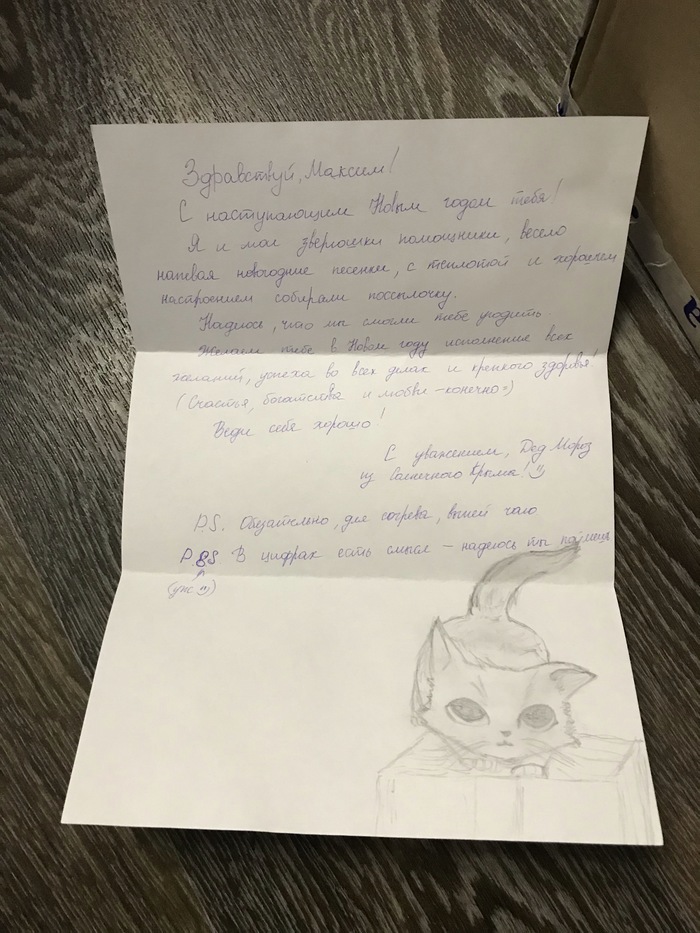 Здравствуй, Максим!
С наступающим Новым годом тебя!
Я и мои зверюшки помощники, весело
напевая новогодние песенки, с теплотой и хорошем
настроением собирали поссылочку.
Надеюсь, что мы смогли тебе угодить.
Желаем тебе в Новом году исполнение всех
желаний, успеха во всех делах и крепкого здоровья!
(Счастья, богатства и любви - конечно =)
Веди себя хорошо!
С уважением, Дед Мороз
из Солнечного Крыма!
P.S. Обязательно, для согрева, выпей чаю
P.SS В цифрах есть смысл - надеюсь ты поймешь